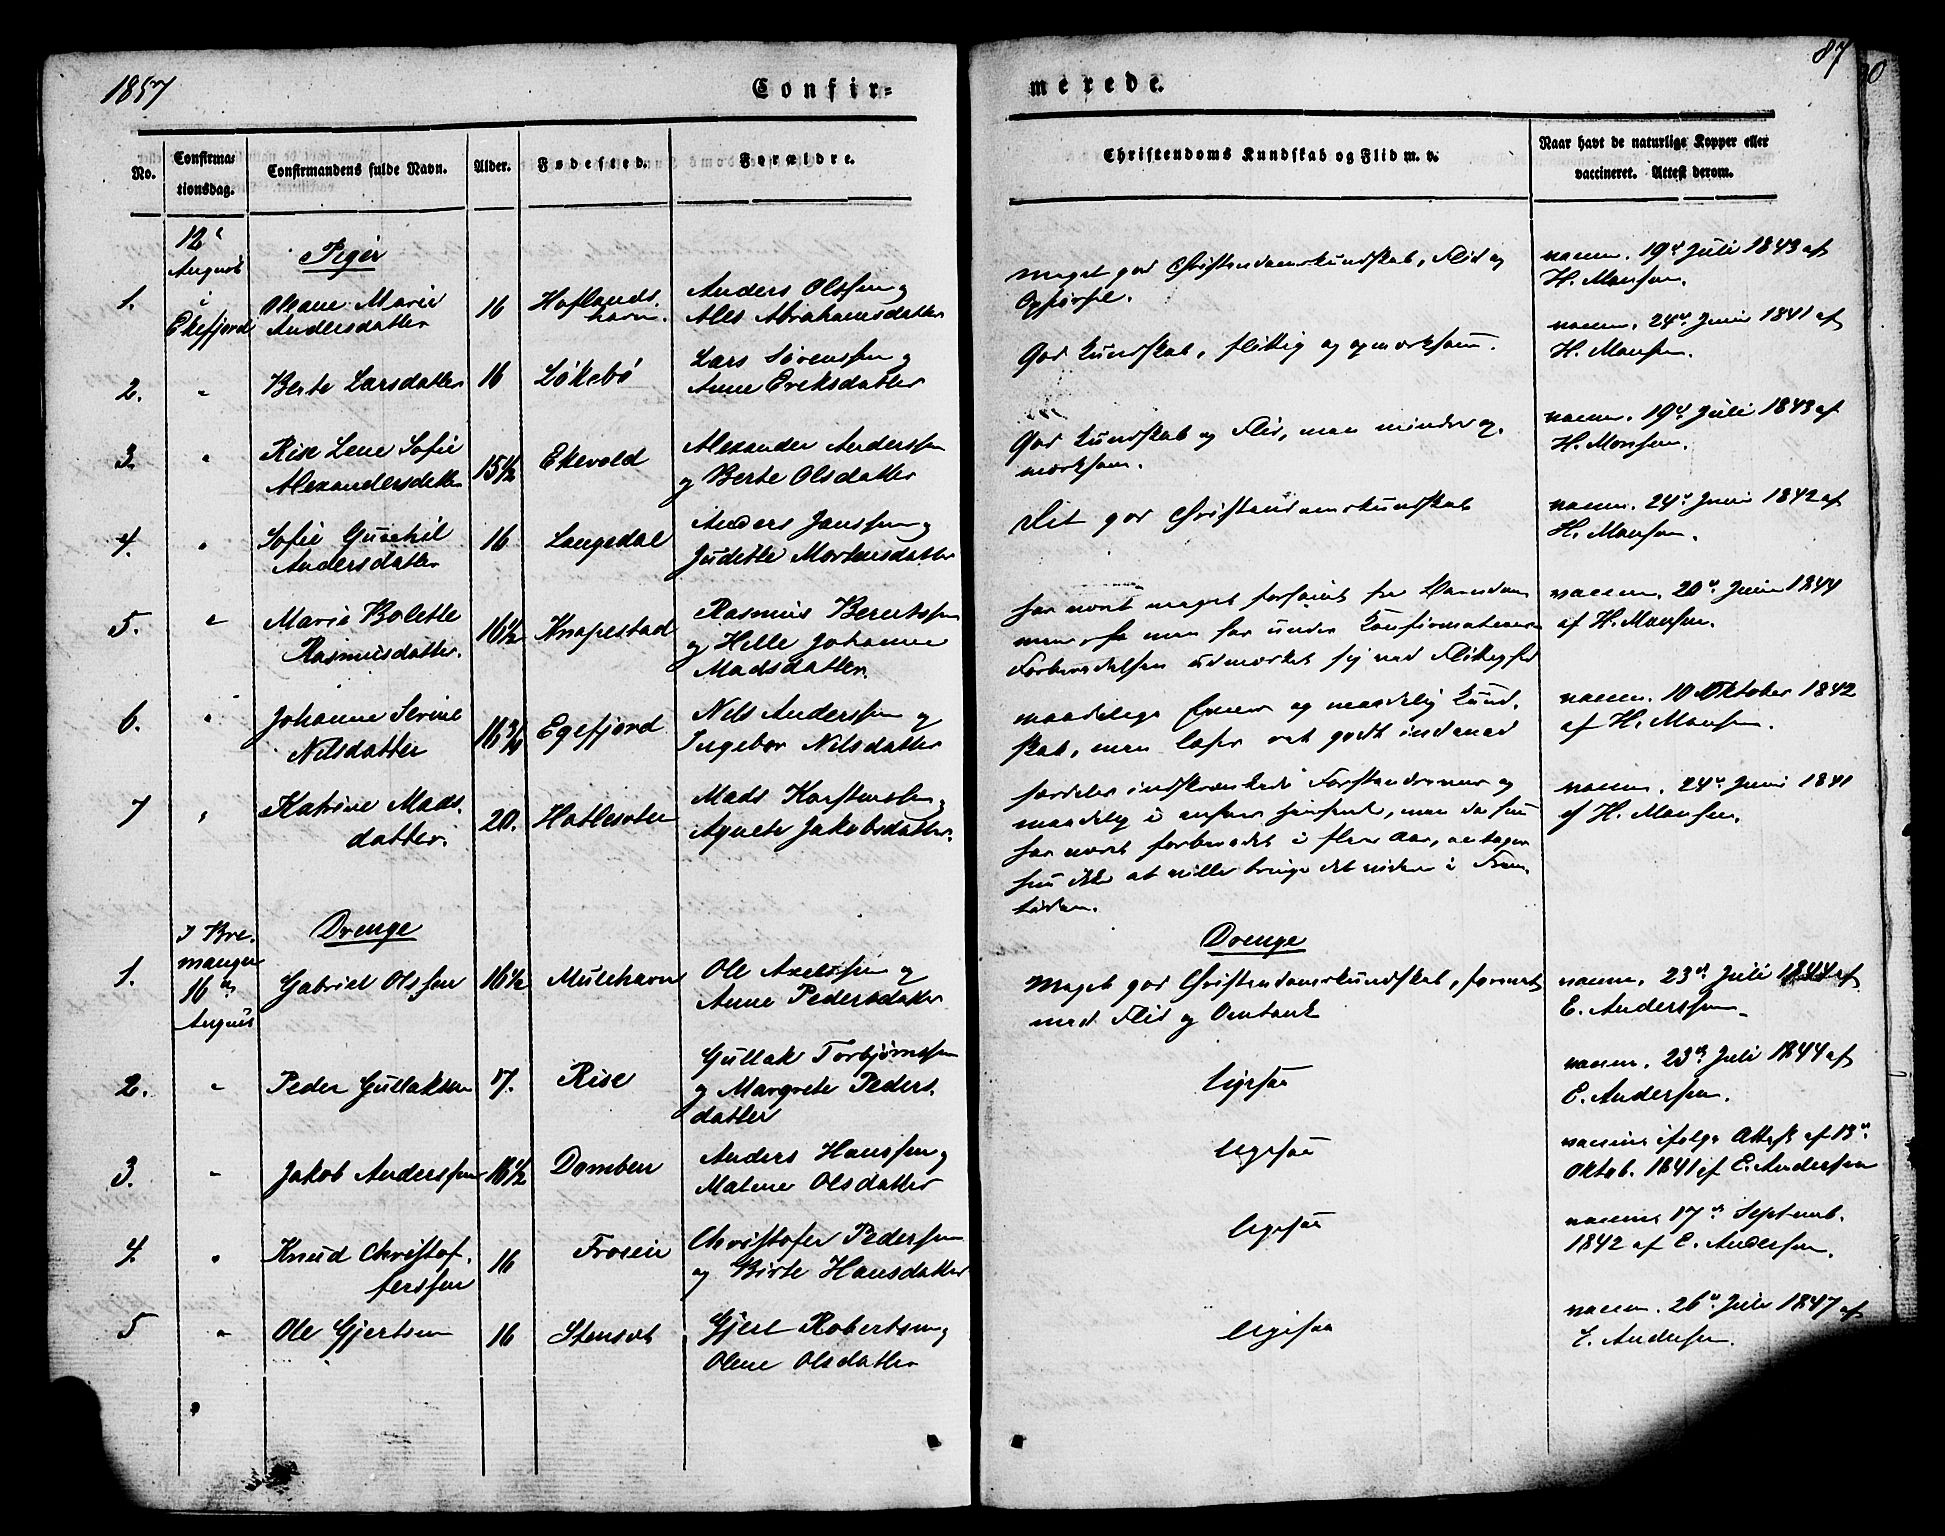 1857
Confir-
merede.
87
No.
Confirma-
tionsdag.
Confirmandens fulde Navn.
Alder.
Fødested.
Forældre.
Christendoms Kundskab og Flid m. v.
Naar havt de naturlige Kopper eller
vaccineret. Attest derom.
12te
August
i
Ekefjord
Piger
1. Oliane Marie 16 Hoflands Anders Olssen og
Andersdatter havn. Ales Abrahamsdatter
Meget god Christendomskundskab, Flid og
Opførsel.
vaccin. 19de Juli 1843 af
H. Monsen.
2. " Berte Larsdatter 16 Løkebø Lars Sørenssen og
Anne Eriksdatter
God Kundskab, flittig og opmærksom.
vaccin. 24de Juni 1841 af
H. Monsen.
3. " Rise Lene Sofie 15 1/2 Ekevold Alexander Anderssen
Alexandersdatter og Berte Olsdatter
God Kundskab og Flid, men mindre op-
mærksom.
vaccin. 19de Juli 1843 af
H. Monsen.
4. " Sofie Gunhil 16 Langedal Anders Janssen og
Andersdatter Judithe Mortensdatter
Ret god Christendomskundskab
vaccin. 24de Juni 1842 af
H. Monsen.
5. " Marie Bolette 16 1/2 Knapestad Rasmus Berntssen
Rasmusdatter. og Helle Johanne
Madsdatter.
har været meget forsømt fra Barndom-
men men har under Confirmations
Forberedelsen udmærket sig ved Flittighed
vaccin. 20de Juni 1844
af H. Monsen.
6. " Johanne Serine Egefjord Nils Anderssen og
Nilsdatter Ingebor Nilsdatter
maadelige Evner og maadelig Kund-
skab, men læser ret godt indenad
vaccin. 10 Oktober 1842
af H. Monsen.
7 " Katrine Mads- 20. Hatleseten Mads Karstenssen og
datter. Agnete Jakobsdatter.
særdeles indskrænkede Forstandsevner og
maadelig i enhver Henseende, men da hun
har været forberedet i flere Aar, antages
hun ikke at ville bringe det videre i Frem-
tiden.
vaccin. 24de Juni 1841
af H. Monsen.
I Bre-
manger
16de
August
Drenge
Drenge
1. Gabriel Olssen 16 1/2 Mulehavn Ole Axelssen og
Anne Pedersdatter
Meget god Christendomskundskab, forenet
med Flid og Omtanke
vaccin. 23de Juli 1844 af
E. Anderssen.
2. " Peder Gullaksen 17. Rise Gullak Torbjørnssen
og Margrete Peders-
datter
ligesaa
vaccin. 23de Juli 1844 af
E. Anderssen.
3. " Jakob Anderssen 16 1/2 Domben Anders Hanssen og
Malene Olsdatter
ligesaa
vaccine ifølge Attest af 13de
Oktob. 1841 af E. Anderssen
4. " Knud Christof- 16 Froseie Christofer Pederssen
ferssen og Birte Hansdatter
ligesaa
vaccine 17de Septemb.
1842 af E. Anderssen.
5 " Ole Gjertsen 16 Stensvet Gjert Robertsen og
Oline Olsdatter
ligesaa
vaccin. 26de Juli 1847 af
E. Anderssen.